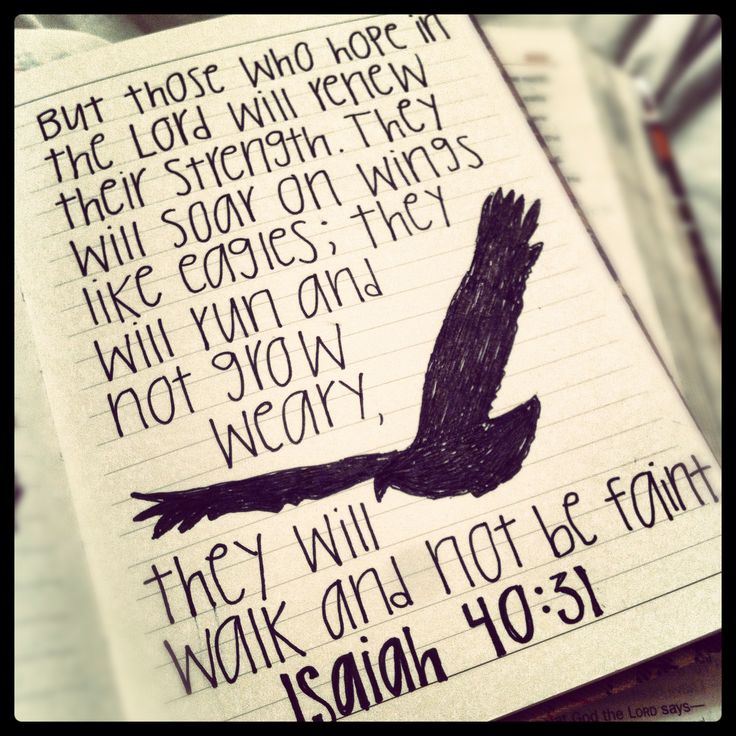 But those who hope in
the Lord will renew
their strength. They
will soar on wings
like eagles; they
will run and
not grow
weary,
they will
walk and not be faint
Isaiah 40:31
God the LORD says—